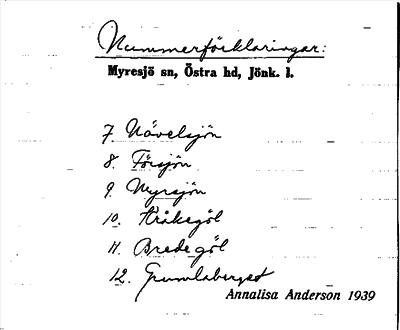 Nummerförklaringar:
Myresjö sn, Östra hd, Jönk. l.
7. Nävelsjön
8. Försjön
9. Myrsjön
10. Kråkegöl
11. Bredegöl
12. Grumlaberget
Annalisa Anderson 1939